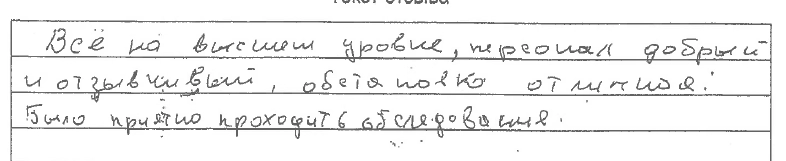 Текст отзыва
Всё на высшем уровне, персонал добрый
и отзывчивый, обстановка отличная.
Было приятно проходить обследования.